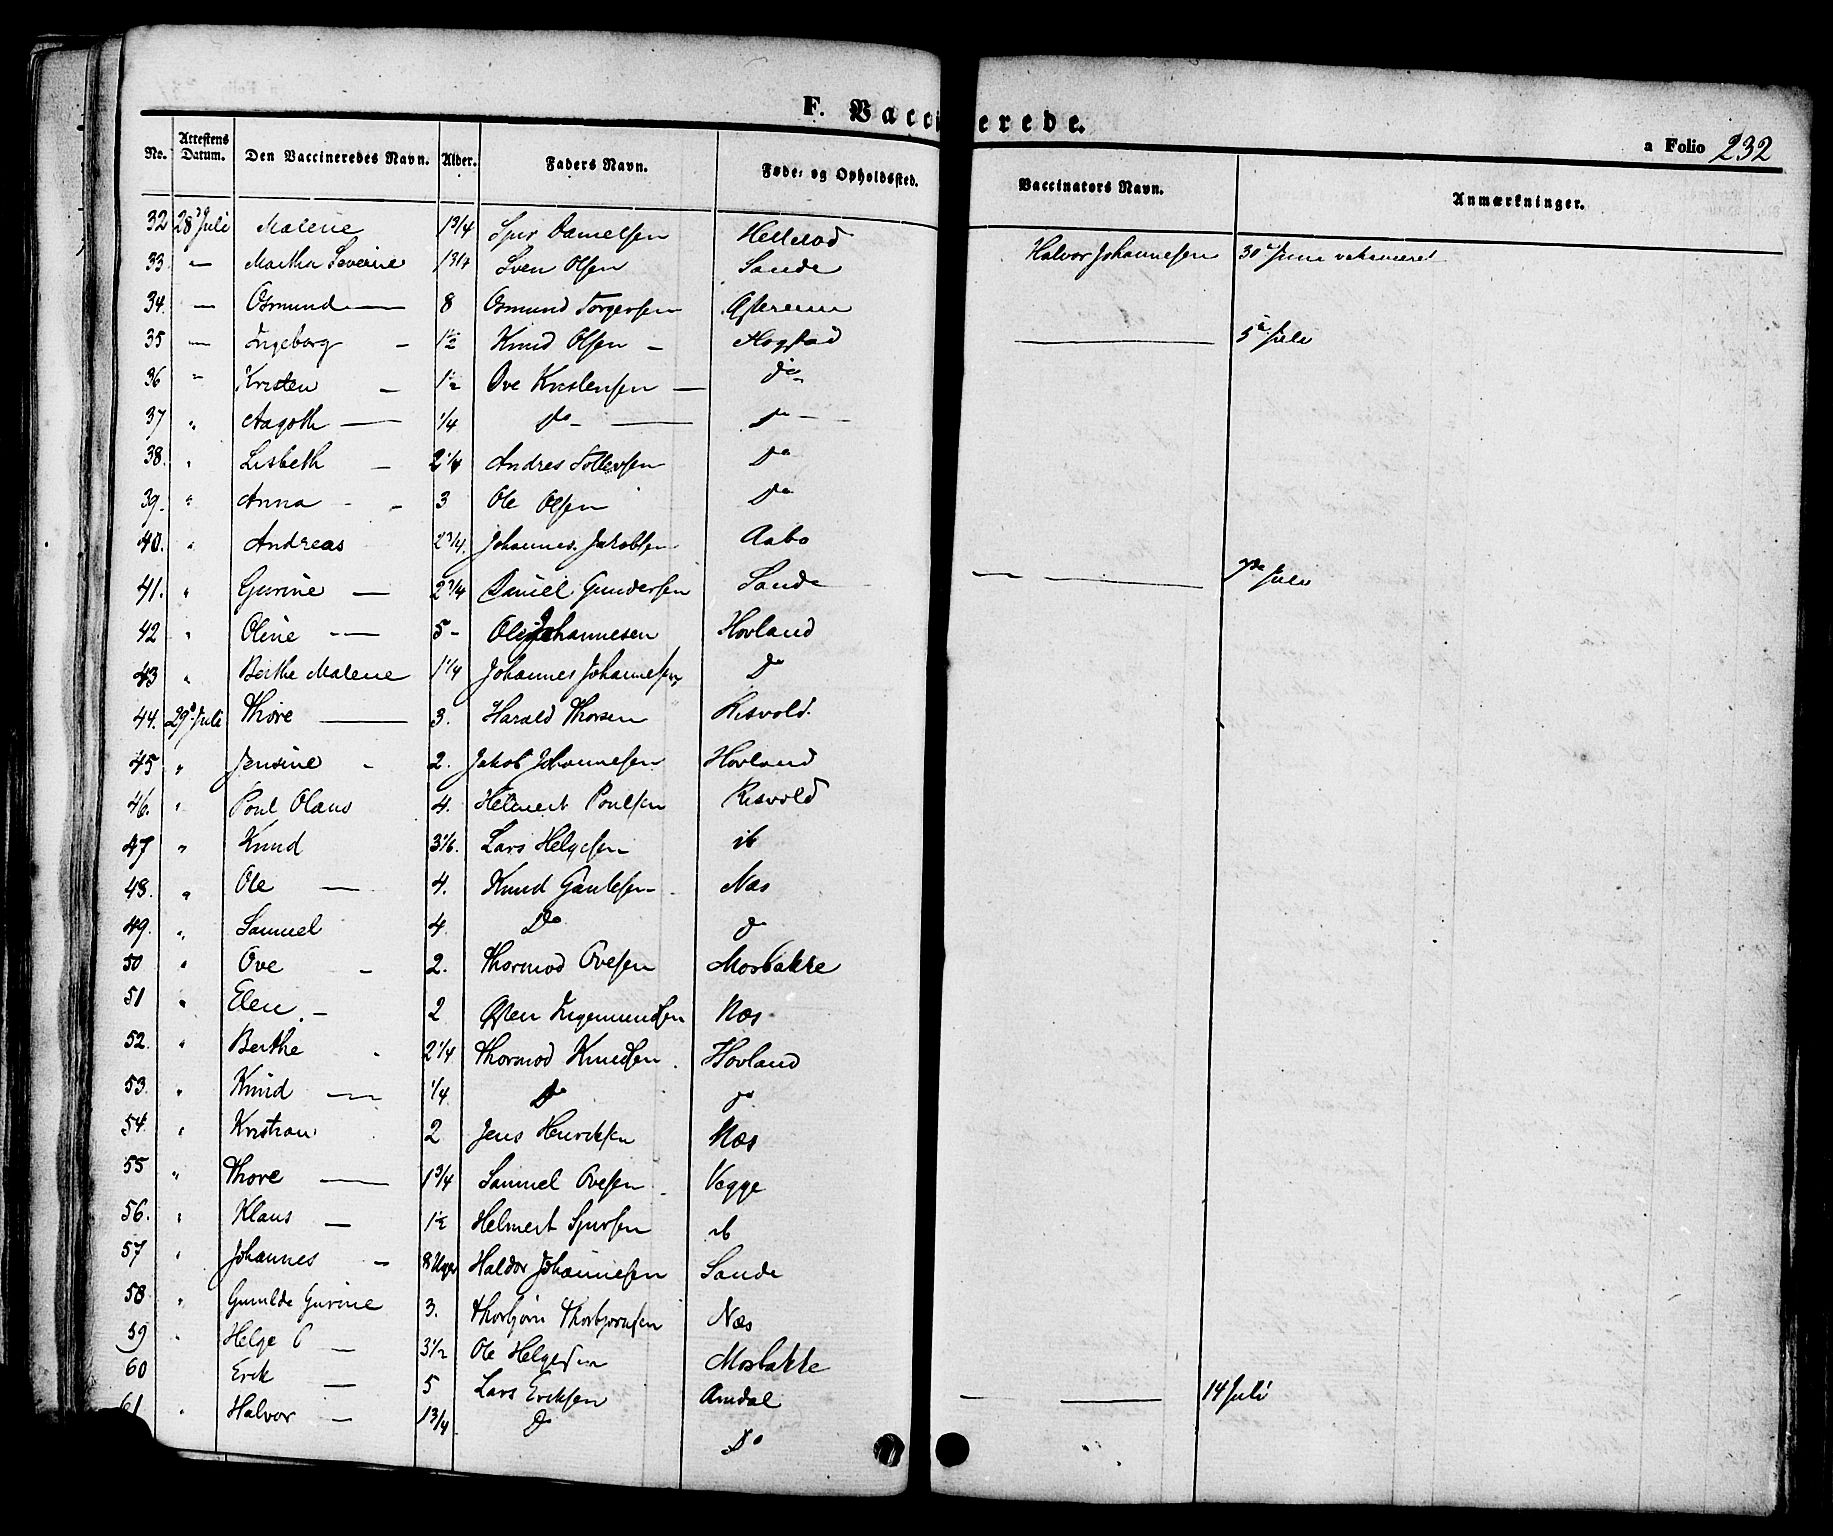 F. Vaccinerede.
a Folio 232
No. Attestens Datum. Den Vaccineredes Navn. Alder. Faders Navn. Føde- og Opholdssted. Vaccinators Navn. Anmærkninger.
32 28 Juli Malene 1 3/4 Sjur Danielsen Hellesad Halvor Johannesen 30 Juni
33. — Martha Severine 1 3/4 Sven Olsen Sande
34. — Osmund — 8 Osmund Torgersen
35 — Ingeborg - 1 1/2 Knud Olsen - Hogstad — 5 Juli
36 " Kristen - 1 1/2 Ove Kristensen — do
37 " Aagoth — 1/4 do — do —
38. " Lisbeth - 2 1/4 Andres Tollevsen Do
39. " Anna - - 3 Ole Olsen Do
40. " Andreas 2 3/4. Johannes Jakobsen Aabo
41. " Gurine — 2 3/4 Daniel Gundersen Sande — — 7de Juli
42 " Oline — 5- Ole Johannesen Hovland
43 " Berthe Malene 1 1/4 Johannes Johannesen Do
44. 29 Juli Thore — 3. Harald Thorsen Risvold.
45 " Jensine - 2. Jakob Johannesen Hovland
46. " Poul Olaus 4. Helmert Poulsen Risvold
47 " Knud 3 1/6. Lars Helgesen ib
48. " Ole — 4. Knud Gautesen - Næs
49. " Samuel 4. Do do
50 " Ove - 2. Thormod Ovesen Mosbakke
51 " Elen. - 2 Ingemundsen Næs
52. " Berthe 2 1/4 Thormod Knudsen. Hovland
53. " Knud — 1/4. Do do
54. " Kristian 2 Jens Henriksen Næs
55 " Thore — 1 3/4 Samuel Ovesen Vegge
56. " Klaus — 1 1/2 Helmert Sjursen ib
57 " Johannes - 8 Uger Haldor Johannesen Sande
58. " Gunilde Gurine 3. Thorbjørn Thorbjørnsen Næs
59 " Helge — 3 1/2 Ole Helgesen Mosbakke
60 Erik — 5 Lars Eriksen Amdal — — 14 Juli
61 " Halvor — 1 3/4 Do Do